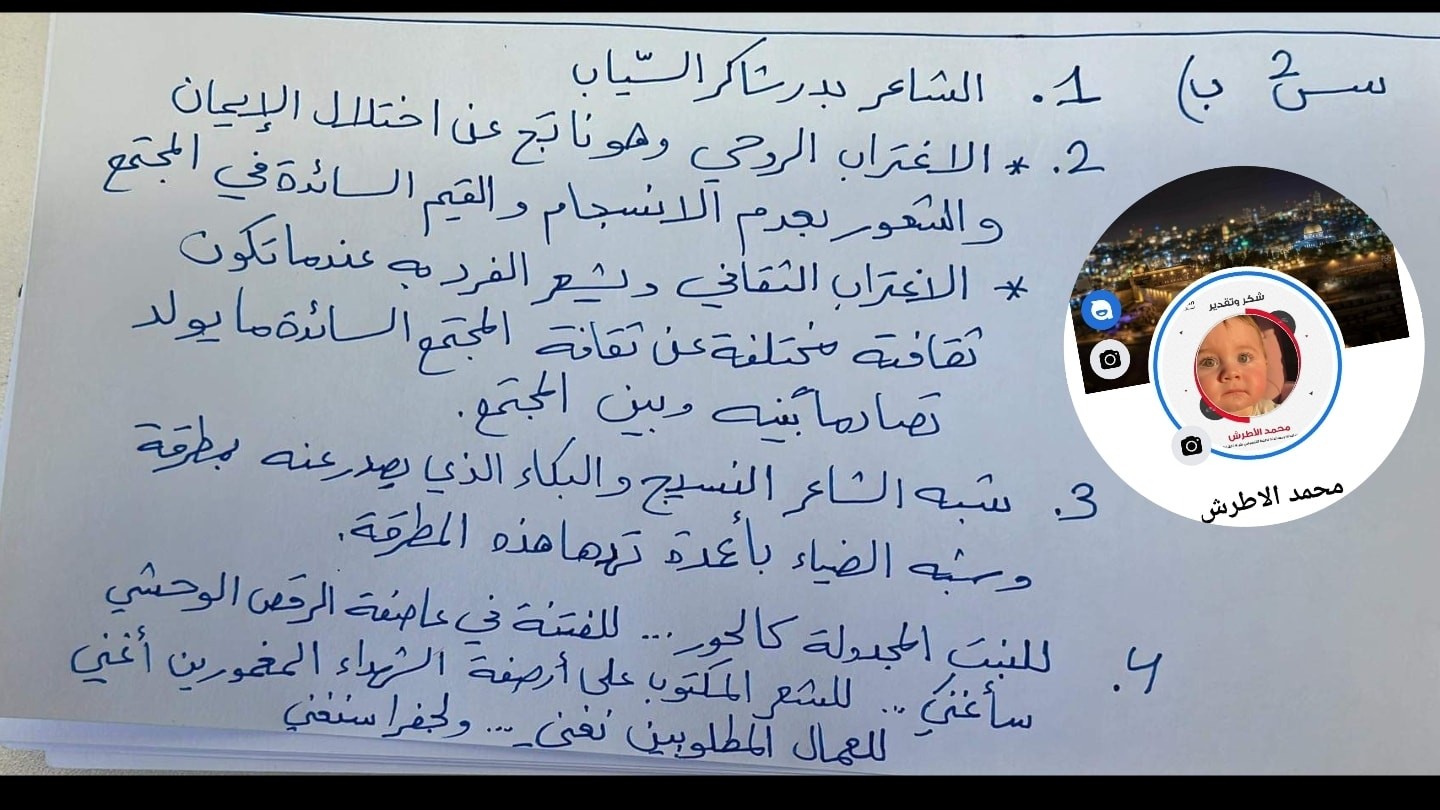 س2 ب) 1. الشاعر بدر شاكر السّياب
2. * الاغتراب الروحي وهو ناتج عن اختلال الإيمان
والشعور بعدم الانسجام والقيم السائدة في المجتمع
* الاغتراب الثقافي ويشعر الفرد به عندما تكون
ثقافته مختلفة عن ثقافة المجتمع السائدة ما يولد
تصادماً بينه وبين المجتمع.
3. شبه الشاعر النسيج والبكاء الذي يصدر عنه بمطرقة
وشبه الضياء بأعمدة تهدها هذه المطرقة.
4. للبنت المجدولة كالحور ... للفتنة في عاصفة الرقص الوحشي
سأغني ... للشعر المكتوب على أرصفة الشهداء المغمورين أغني
للعمال المطلوبين نغني ... ولجفرا سنغني
شكر وتقدير
محمد الأطرش
محمد الاطرش